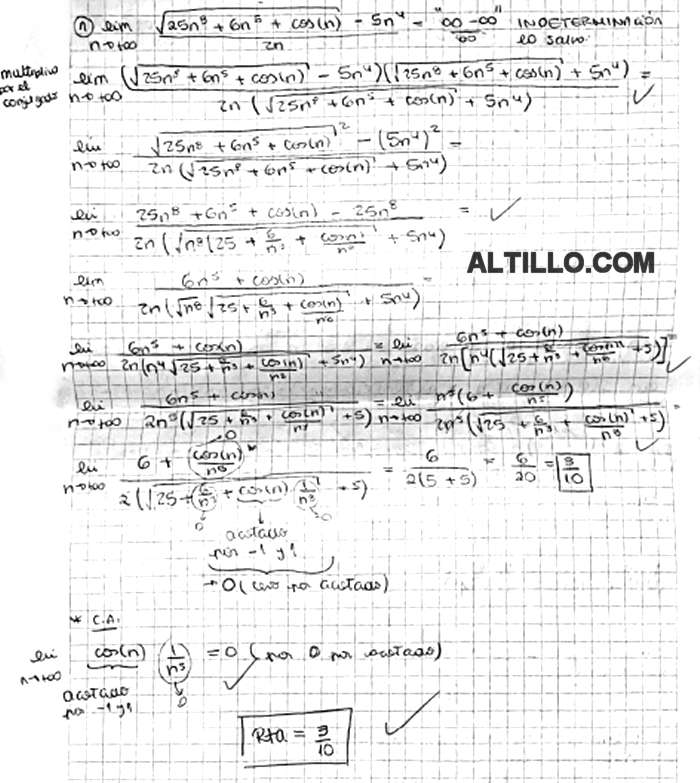 ① lim n→+∞ (√(25n⁸ + 6n⁵ + cos(n)) − 5n⁴) / 2n = "∞ − ∞" / ∞ INDETERMINACIÓN
lo salvo
multiplico por el conjugado
lim n→+∞ (√(25n⁸ + 6n⁵ + cos(n)) − 5n⁴)(√(25n⁸ + 6n⁵ + cos(n)) + 5n⁴) / 2n(√(25n⁸ + 6n⁵ + cos(n)) + 5n⁴) = ✓
lim n→+∞ (√(25n⁸ + 6n⁵ + cos(n))² − (5n⁴)²) / 2n(√(25n⁸ + 6n⁵ + cos(n)) + 5n⁴) =
lim n→+∞ (25n⁸ + 6n⁵ + cos(n) − 25n⁸) / 2n(√(n⁸(25 + 6/n³ + cos(n)/n⁸)) + 5n⁴) = ✓
ALTILLO.COM
lim n→+∞ (6n⁵ + cos(n)) / 2n(√n⁸ √(25 + 6/n³ + cos(n)/n⁸) + 5n⁴) =
lim n→+∞ (6n⁵ + cos(n)) / 2n(n⁴√(25 + 6/n³ + cos(n)/n⁸) + 5n⁴) = lim n→+∞ (6n⁵ + cos(n)) / 2n[n⁴(√(25 + 6/n³ + cos(n)/n⁸) + 5)] = ✓
lim n→+∞ (6n⁵ + cos(n)) / 2n⁵(√(25 + 6/n³ + cos(n)/n⁸) + 5) = lim n→+∞ n⁵(6 + cos(n)/n⁵) / 2n⁵(√(25 + 6/n³ + cos(n)/n⁸) + 5) = ✓
lim n→+∞ (6 + cos(n)/n⁵ *→0) / 2(√(25 + 6/n³ + cos(n) 1/n⁸) + 5) = 6 / 2(5 + 5) = 6/20 = 3/10
0 acotado 0
por −1 y 1
→ 0 (cero por acotado)
* C.A.
lim n→+∞ cos(n) (1/n⁵) = 0 (por 0 por acotado) ✓
acotado 0
por −1 y 1
Rta = 3/10 ✓